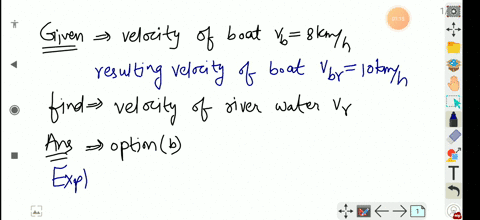 Given ⇒ velocity of boat v_b = 8km/h
resulting velocity of boat v_br = 10km/h
find ⇒ velocity of river water v_r
Ans ⇒ option (b)
Exp)